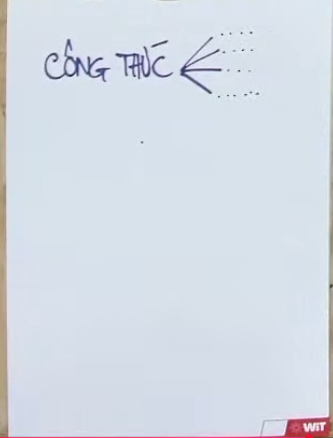 CÔNG THỨC
....
....
....
.....
WiT